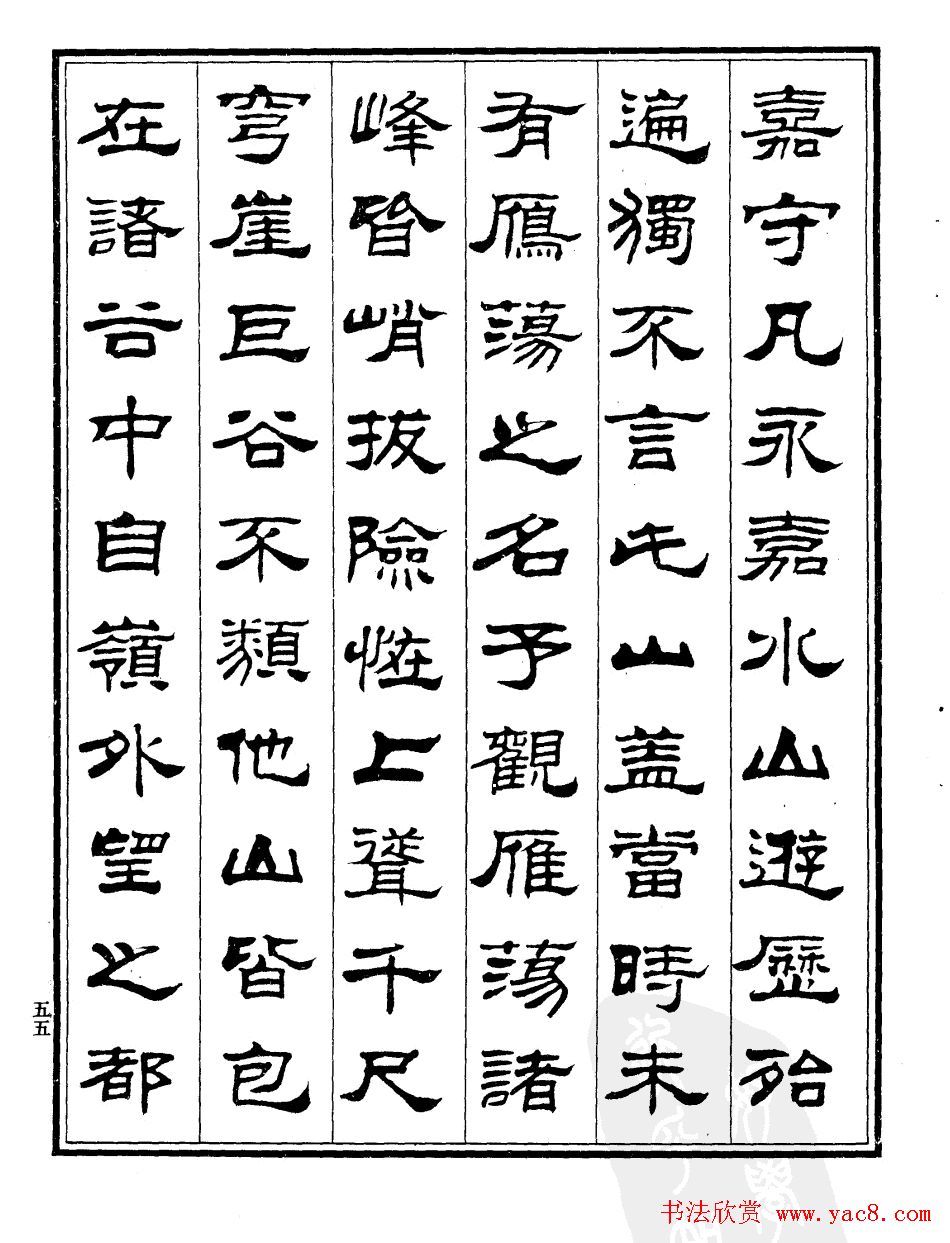 嘉守凡永嘉水山遊歷殆
遍獨不言此山蓋當時未
有鴈蕩之名予觀雁蕩諸
峰皆峭拔險恠上聳千尺
穹崖巨谷不類他山皆包
在諸谷中自嶺外望之都
五五
书法欣赏 www.yac8.com